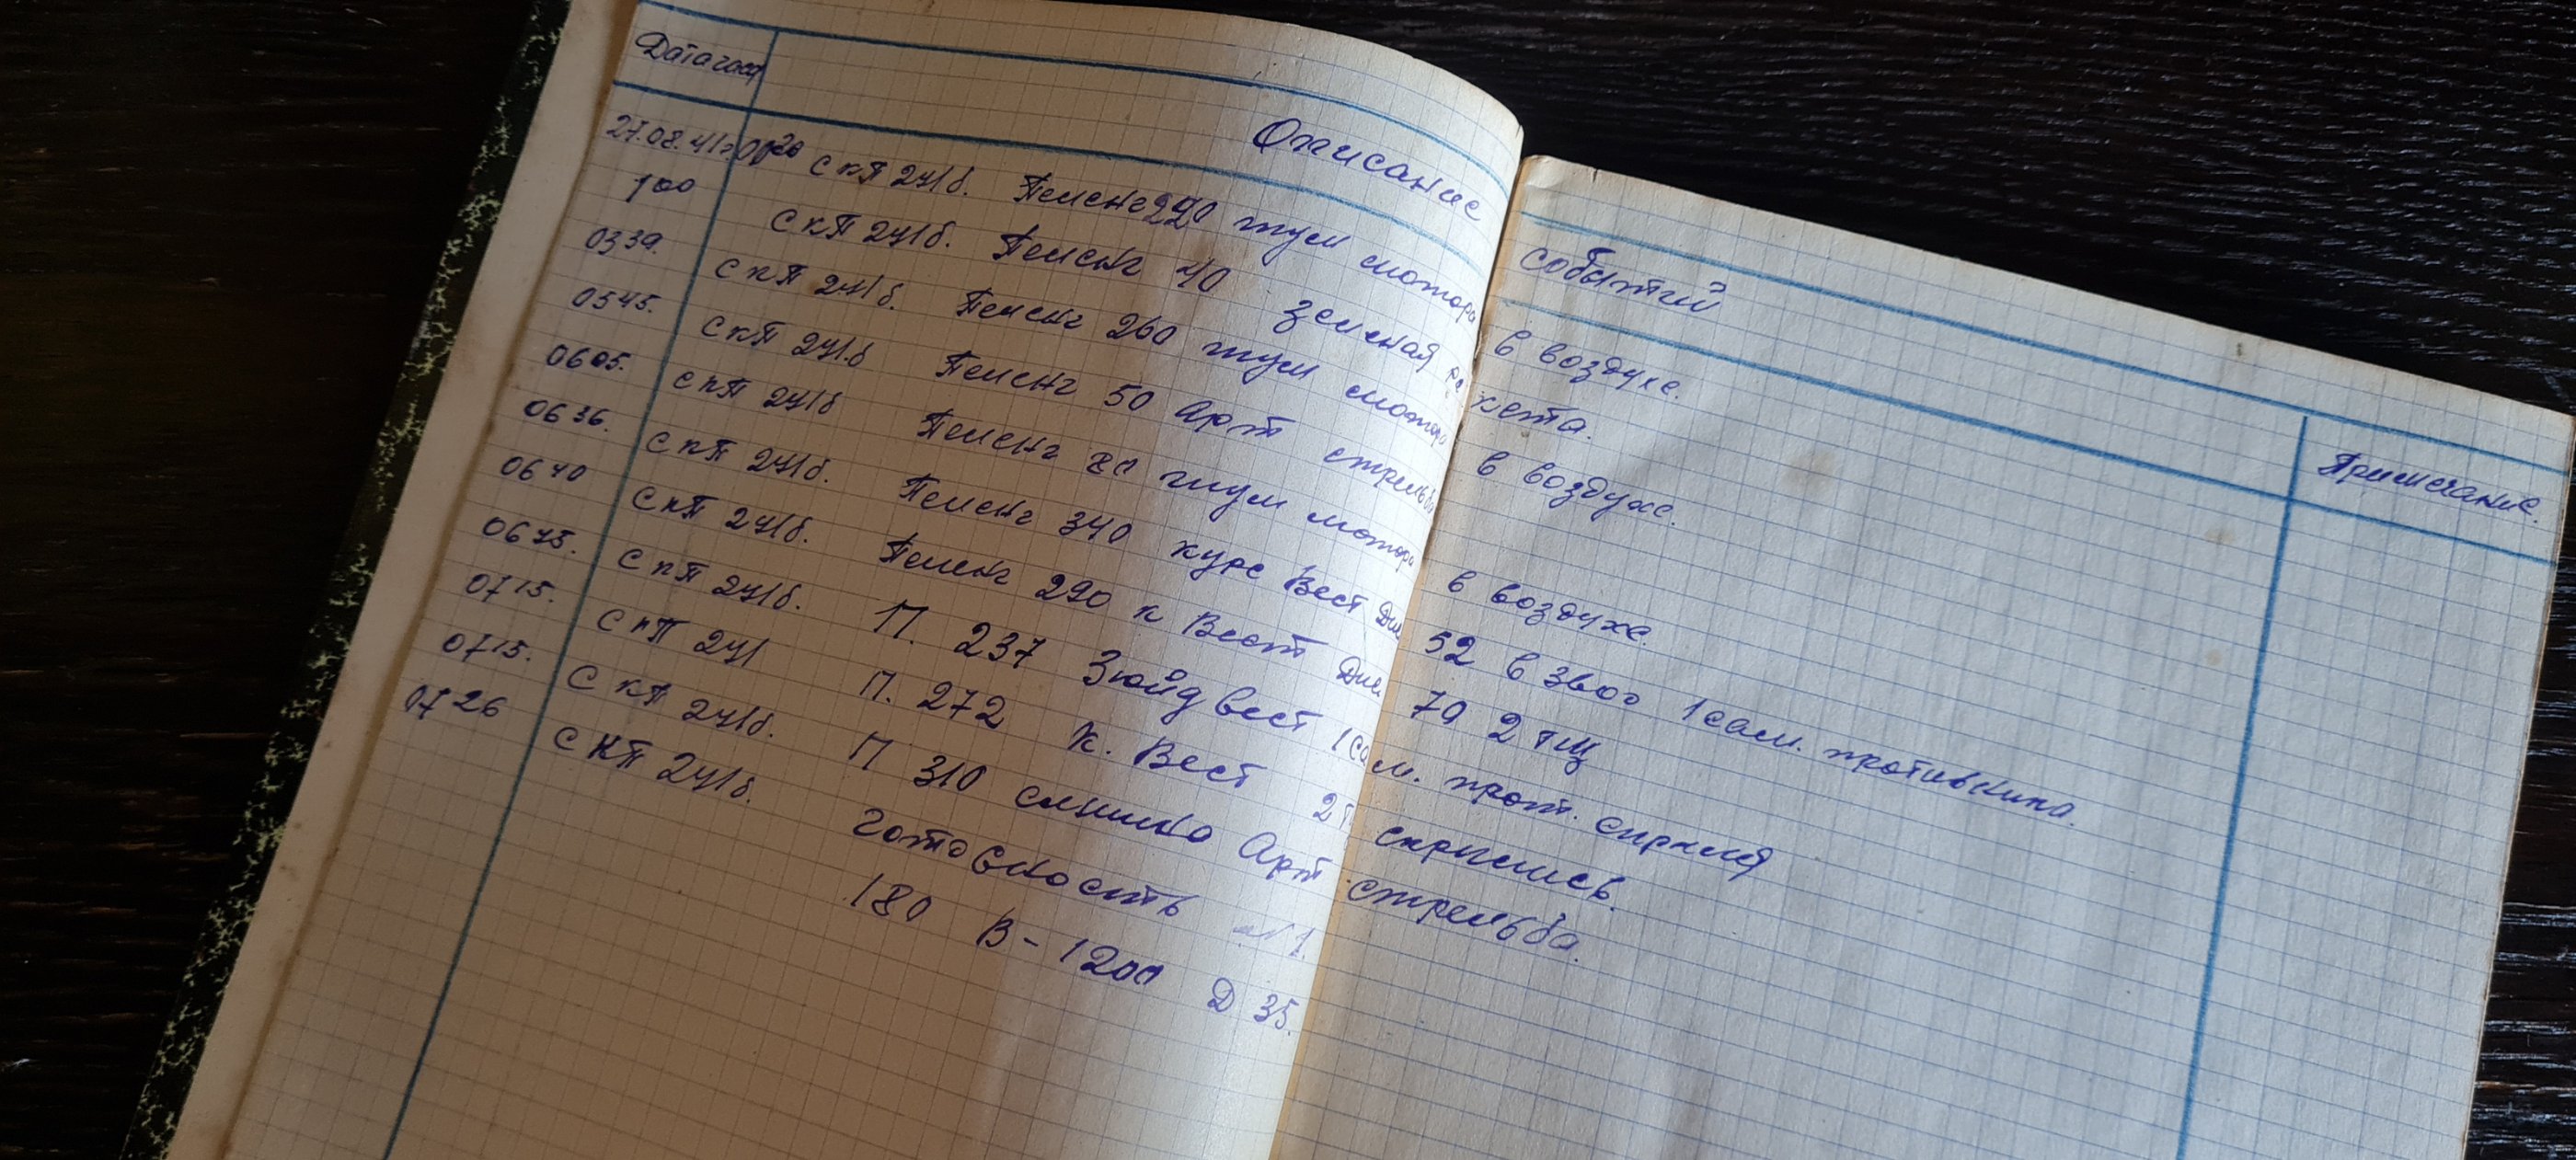 Дата час Описание событий Примечание.
27.08.41г. 0020 с кп 241б. Пеленг 220 шум мотора в воздухе.
100 с кп 241б. Пеленг 40 зеленая ракета.
0339. с кп 241б. Пеленг 260 шум мотора в воздухе.
0545. с кп 241.б Пеленг 50 Арт стрельба
0605. с кп 241б Пеленг шум мотора в воздухе.
0636. с кп 241б. Пеленг 340 курс Вест Дис 52 в 3000 1 сам. противника.
0640 с кп 241б. Пеленг 290 к Вест Дис. 70 2 тщ
0645. с кп 241б. П. 237 Зюйд вест 1 сам. прот. скрылся
0715. с кп 241 П. 272 К. Вест 2 скрылись.
0715. с кп 241б. П 310 слышно Арт стрельба.
0726 с кп 241б. готовность №1.
180 В-1200 Д 35.